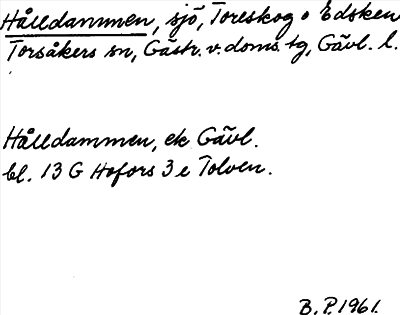 Hålldammen, sjö, Toreskog o Edsken
Torsåkers sn, Gästr. v. doms. tg, Gävl. l.
Hålldammen, ek Gävl.
bl. 13 G Hofors 3 e Tolven.
B.P. 1961.